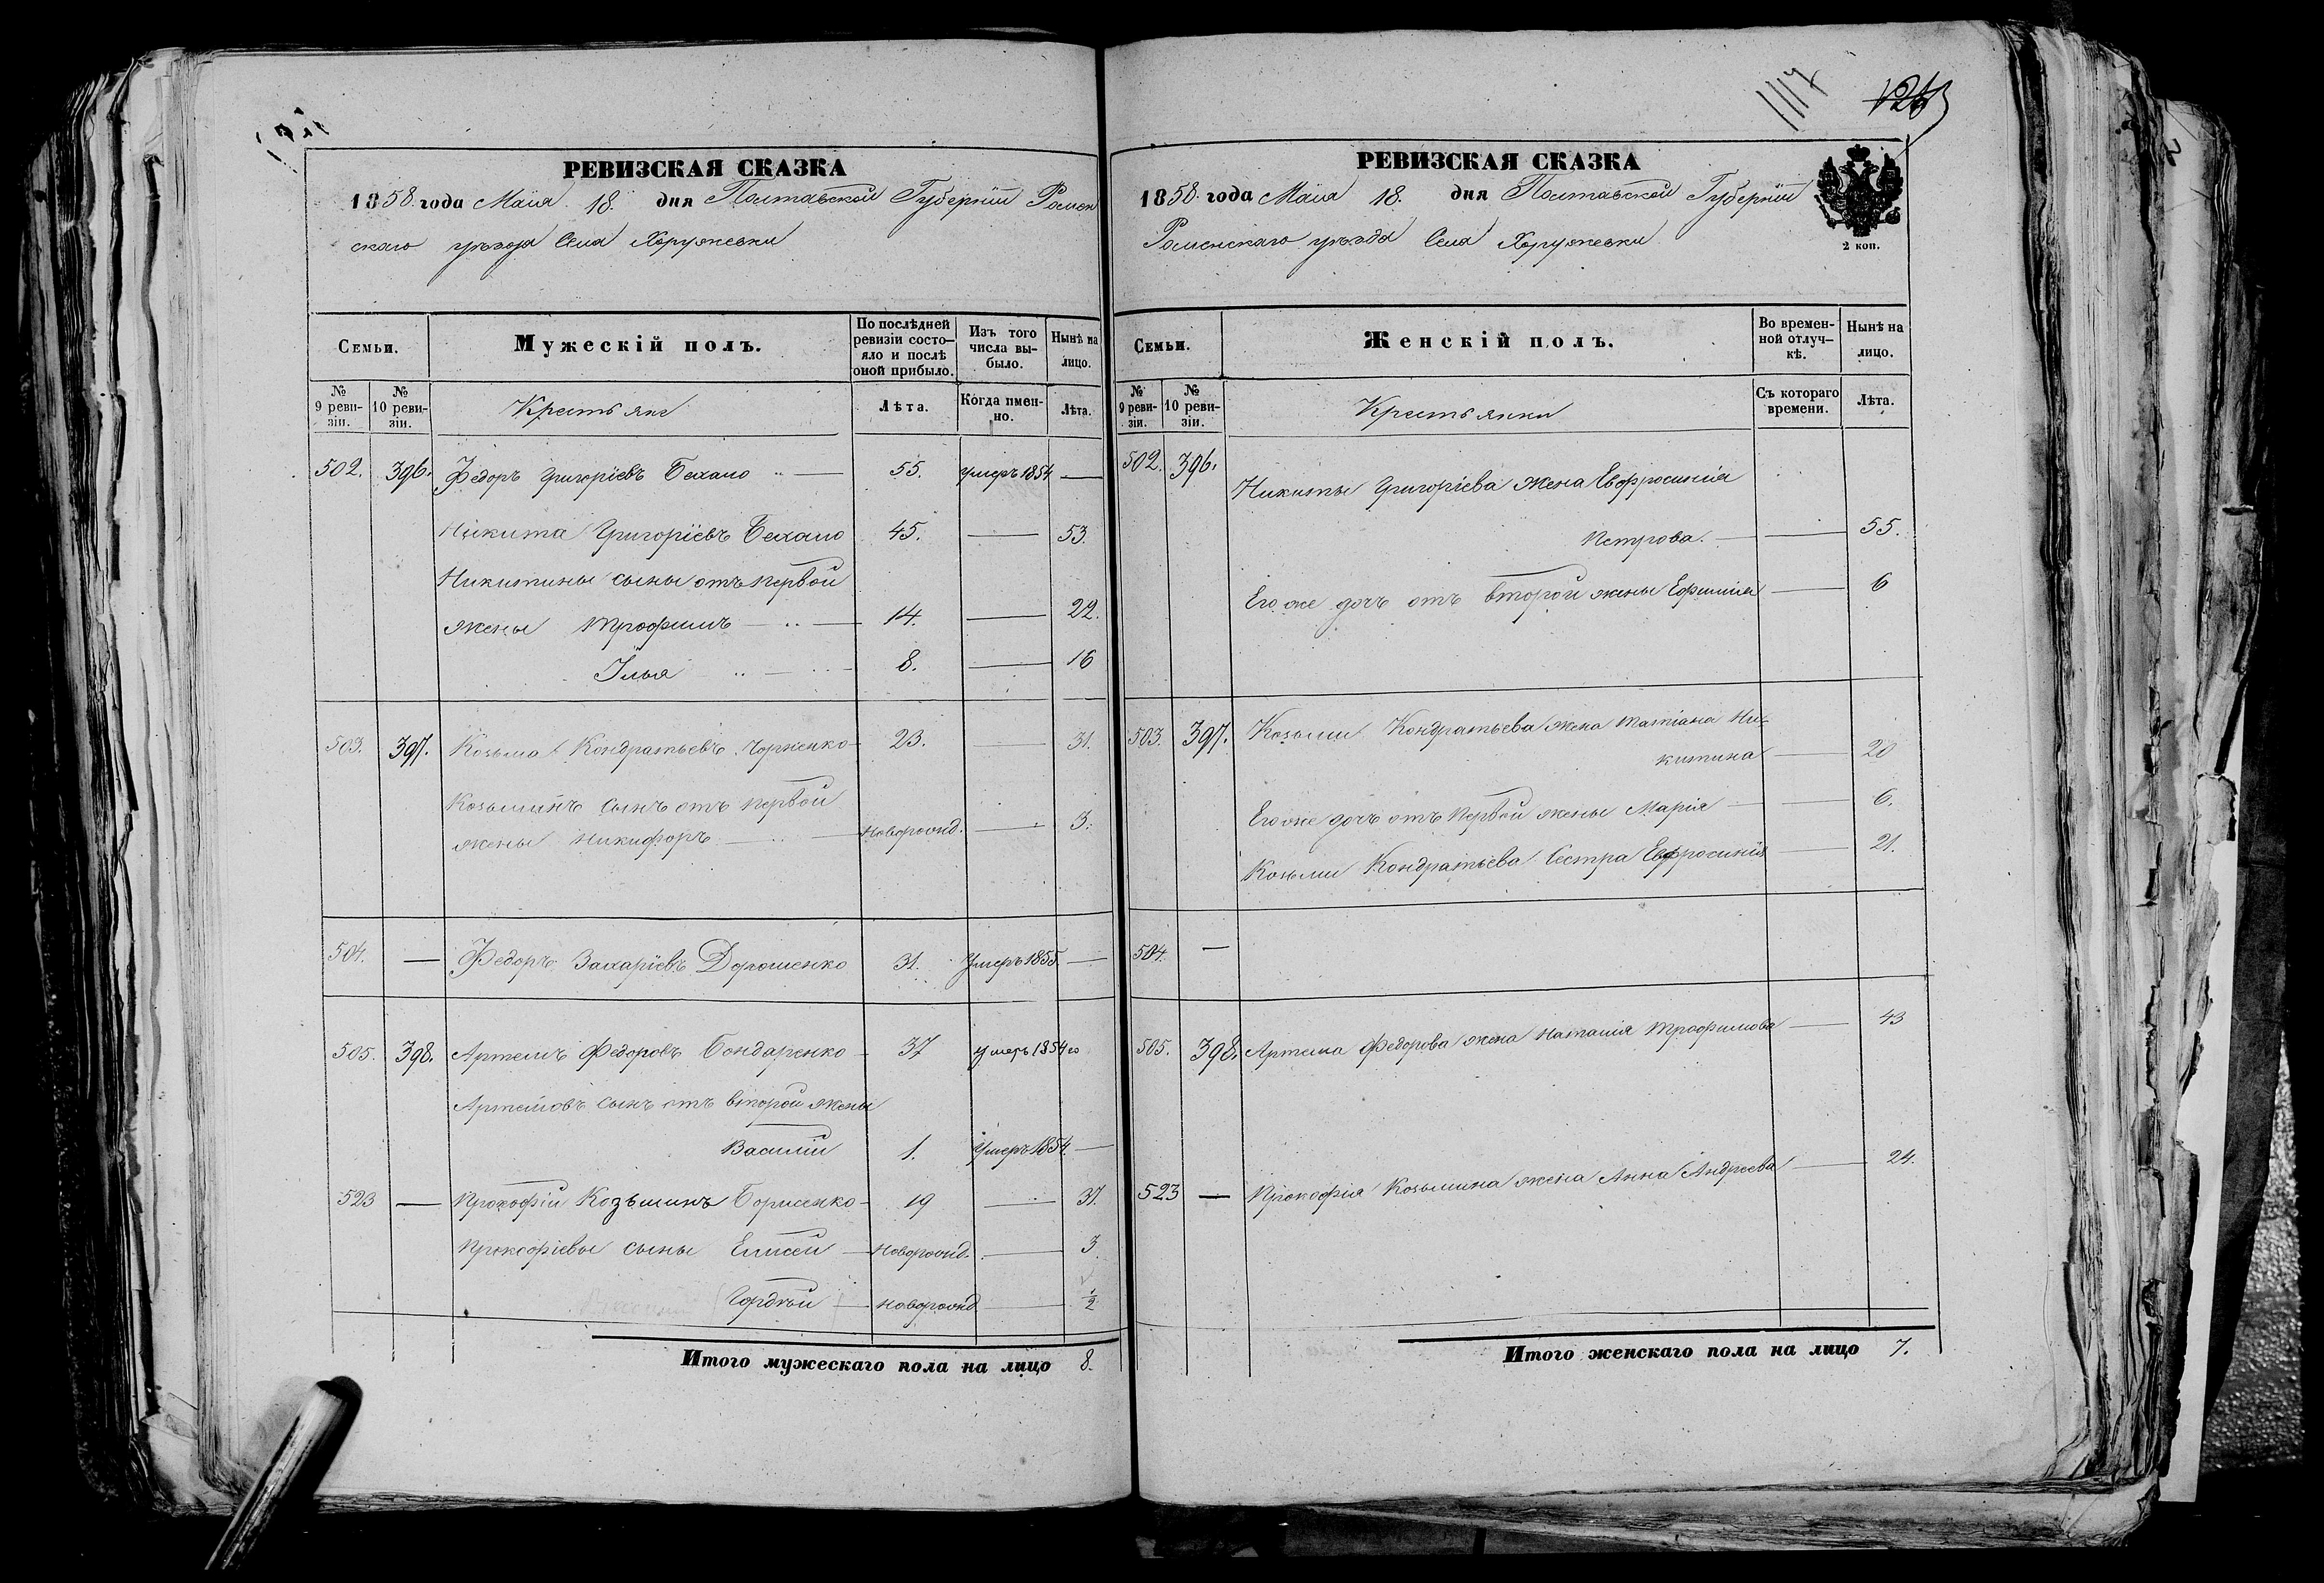 РЕВИЗСКАЯ СКАЗКА
1858. года Маія 18. дня Полтавской Губерніи Ромен
скаго уѣзда Села Хоружевки
Семьи.
Мужескій полъ.
По послѣдней ревизіи состо-
яло и послѣ оной прибыло.
Изъ того числа вы-
было.
Нынѣ на лицо.
№ 9 реви-
зіи.
№ 10 реви-
зіи.
Крестьяне
Лѣта.
Когда имен-
но.
Лѣта.
502. 396. Федоръ Григоріевъ 55. умеръ 1854 —
Никита Григоріевъ 45. — 53.
Никитины сыны отъ первой
жены Трофимъ — 14. — 22.
Илья — 8. — 16
503. 397. Козьма Кондратьевъ Чорненко 23. — 31.
Козьминъ сынъ отъ первой
жены Никифоръ — новорожд. — 3.
504. — Федоръ Захаріевъ Дорошенко 31. Умеръ 1855. —
505. 398. Артемъ Федоровъ Бондаренко 37 умеръ 1854го
Артемовъ сынъ отъ второй жены
Василій 1. Умеръ 1854. —
523 — Прокофій Козьминъ Борисенко 19 — 37.
Прокофіевы сыны Елисей — новорожд. — 3.
Гордѣй — новорожд — ½
Итого мужескаго пола на лицо 8.
1117
РЕВИЗСКАЯ СКАЗКА
1858. года Маія 18. дня Полтавской Губерніи
Роменскаго уѣзда Села Хоружевки
2 коп.
Семьи.
Женскій полъ.
Во времен-
ной отлуч-
кѣ.
Нынѣ на лицо.
№ 9 реви-
зіи.
№ 10 реви-
зіи.
Крестьянки
Съ котораго времени.
Лѣта.
502. 396. Никиты Григоріева жена Евфросинія
Петрова. — 55.
Его же дочь отъ второй жены Ефимія — 6
503. 397. Козьми Кондратьева жена Татіана Ни-
китина — 20
Его же дочь отъ первой жены Марія — 6.
Козьми Кондратьева Сестра Евфросинія — 21.
504. —
505. 398. Артема Федорова жена Наталія Трофимова — 43
523 — Прокофія Козьмина жена Анна Андреева — 24.
Итого женскаго пола на лицо 7.